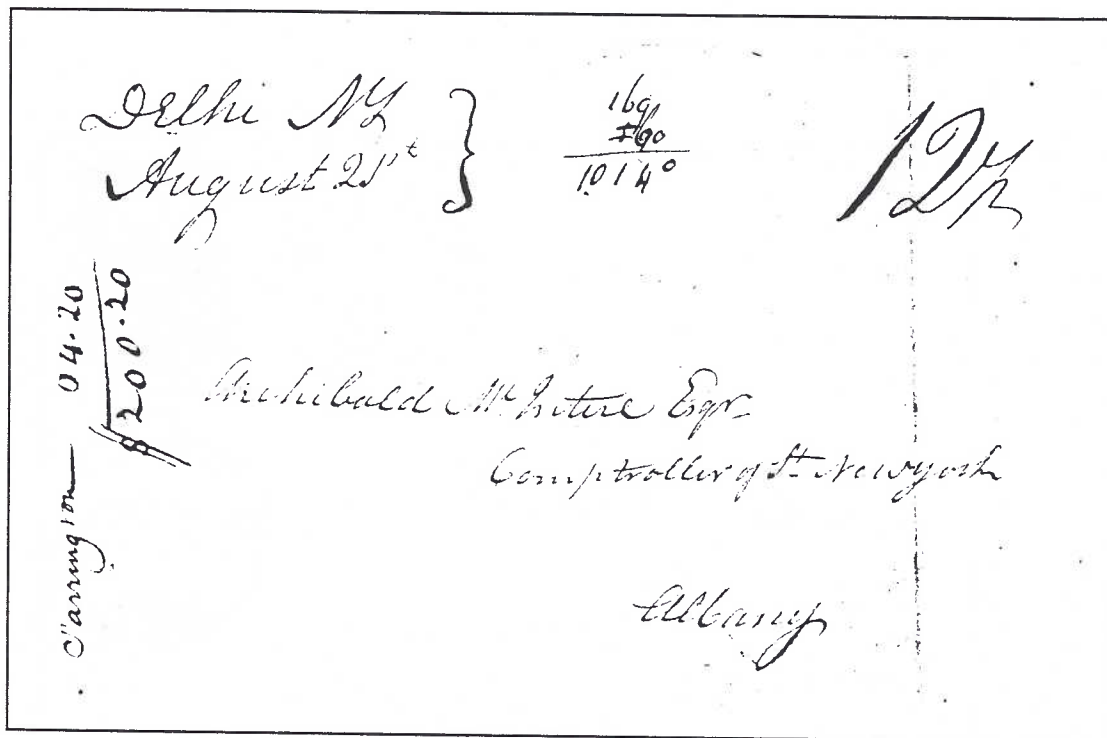 Delhi NY
August 21st
169
190
10140
12½
Carrington 04.20
$200.20
Archibald McIntire Esqr
Comptroller of St. Newyork
Albany